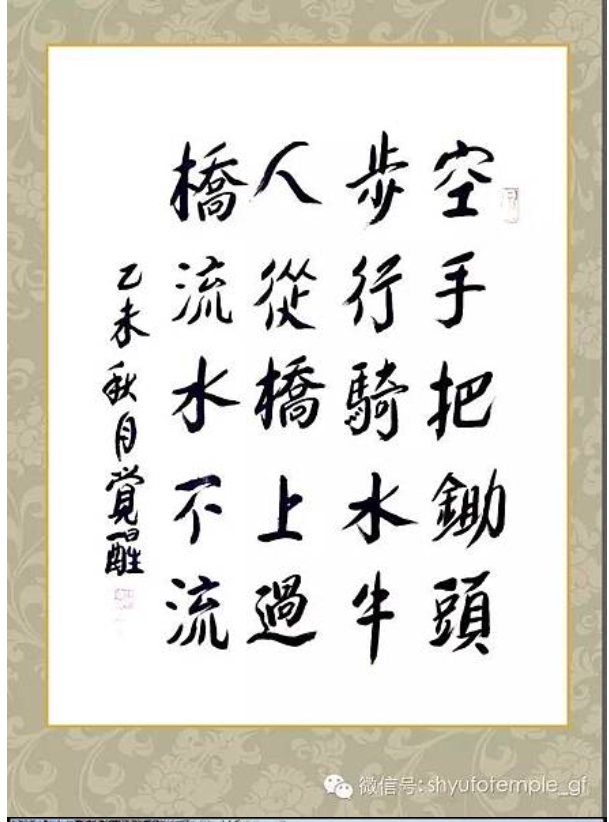 空手把鋤頭
步行騎水牛
人從橋上過
橋流水不流
乙未秋月覺醒
微信号: shyufotemple_gf